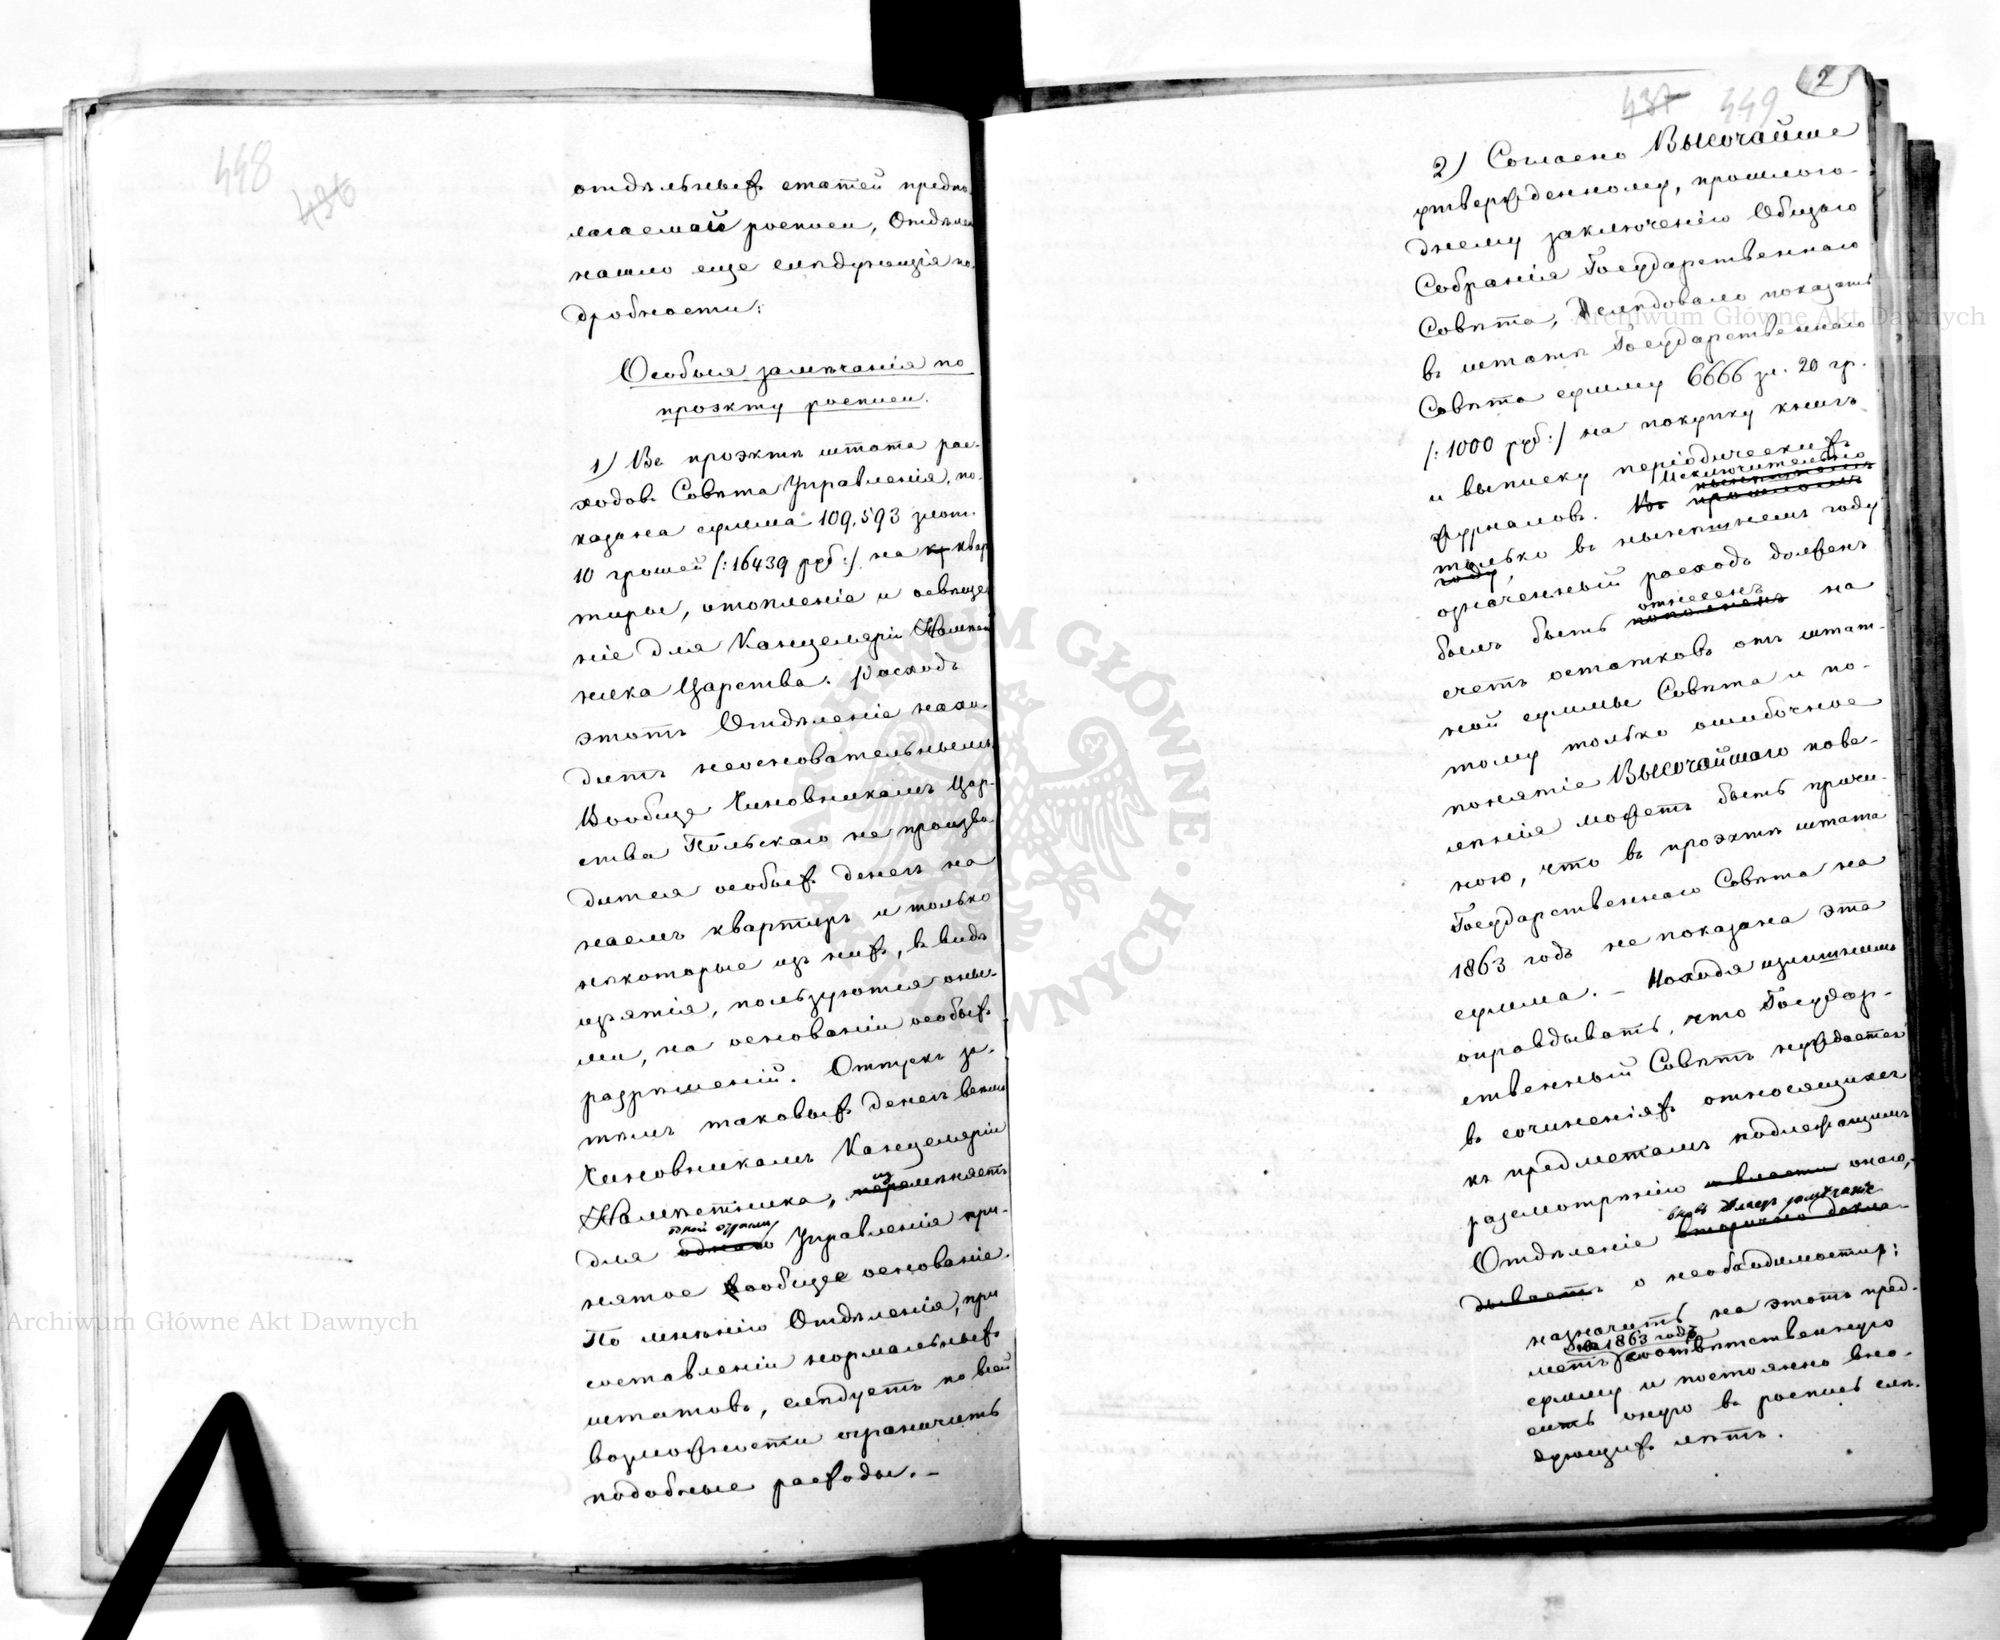 448
436
отдѣльныхъ статей предпо-
лагаемой росписи, Отдѣлен
нашло еще слѣдующія по-
дробности:
Особыя замѣчанія по
проэкту росписи.
1) Въ проэктѣ штата рас-
ходовъ Совѣта Управленія, по-
казана сумма 109,593 злот.
10 грошей /:16439 руб:/ на кр квар
тиры, отопленіе и освѣще
ніе для Канцеляріи Намѣст
ника Царства. Расходъ
этотъ Отдѣленіе нахо-
дитъ неосновательнымъ.
Вообще Чиновникамъ Цар-
ства Польскаго не произво
дится особыхъ денегъ на
наемъ квартиръ и только
нѣкоторые изъ нихъ, въ видѣ
изъятія, пользуются оны-
ми, на основаніи особыхъ
разрѣшеній. Отпускъ за-
тѣмъ таковыхъ денегъ всѣмъ
Чиновникамъ Канцеляріи
из
Намѣстника, перемѣняетъ
этой отрасли
для одного Управленія при-
нятое вообще основаніе.
По мнѣнію Отдѣленія, при
составленіи нормальныхъ
штатовъ, слѣдуетъ по всей
возможности ограничить
подобные расходы. –
437 449 2
2) Согласно Высочайше
утвержденному, прошлого-
днему заключенію Общаго
Собранія Государственнаго
Совѣта, слѣдовало показать
въ штатѣ Государственнаго
Совѣта сумму 6666 зл. 20 гр.
/:1000 руб:/ на покупку книгъ
и выписку періодическихъ
Исключительно
нынѣшнемъ
журналовъ. Въ прошломъ
только въ нынѣшнемъ году
году
означенный расходъ долженъ
отнесенъ
былъ быть пополненъ на
счетъ остатковъ отъ штат-
ной суммы Совѣта и по-
тому только ошибочное
понятіе Высочайшаго пове-
лѣнія можетъ быть причи-
ною, что въ проэктѣ штата
Государственнаго Совѣта на
1863 годъ не показана эта
сумма. – Находя излишнимъ
оправдывать, что Государ-
ственный Совѣтъ нуждается
въ сочиненіяхъ относящихся
къ предметамъ подлежащимъ
разсмотрѣнію и власти онаго,
замѣчаніе
Отдѣленіе вторично докла-
дываетъ о необходимости:
назначить на этотъ пред-
на 1863 годъ
метъ соотвѣтственную
сумму и постоянно вно-
сить оную въ роспись слѣ-
дующихъ лѣтъ.
Archiwum Główne Akt Dawnych
Archiwum Główne Akt Dawnych
ARCHIWUM GŁÓWNE · AKT DAWNYCH ·